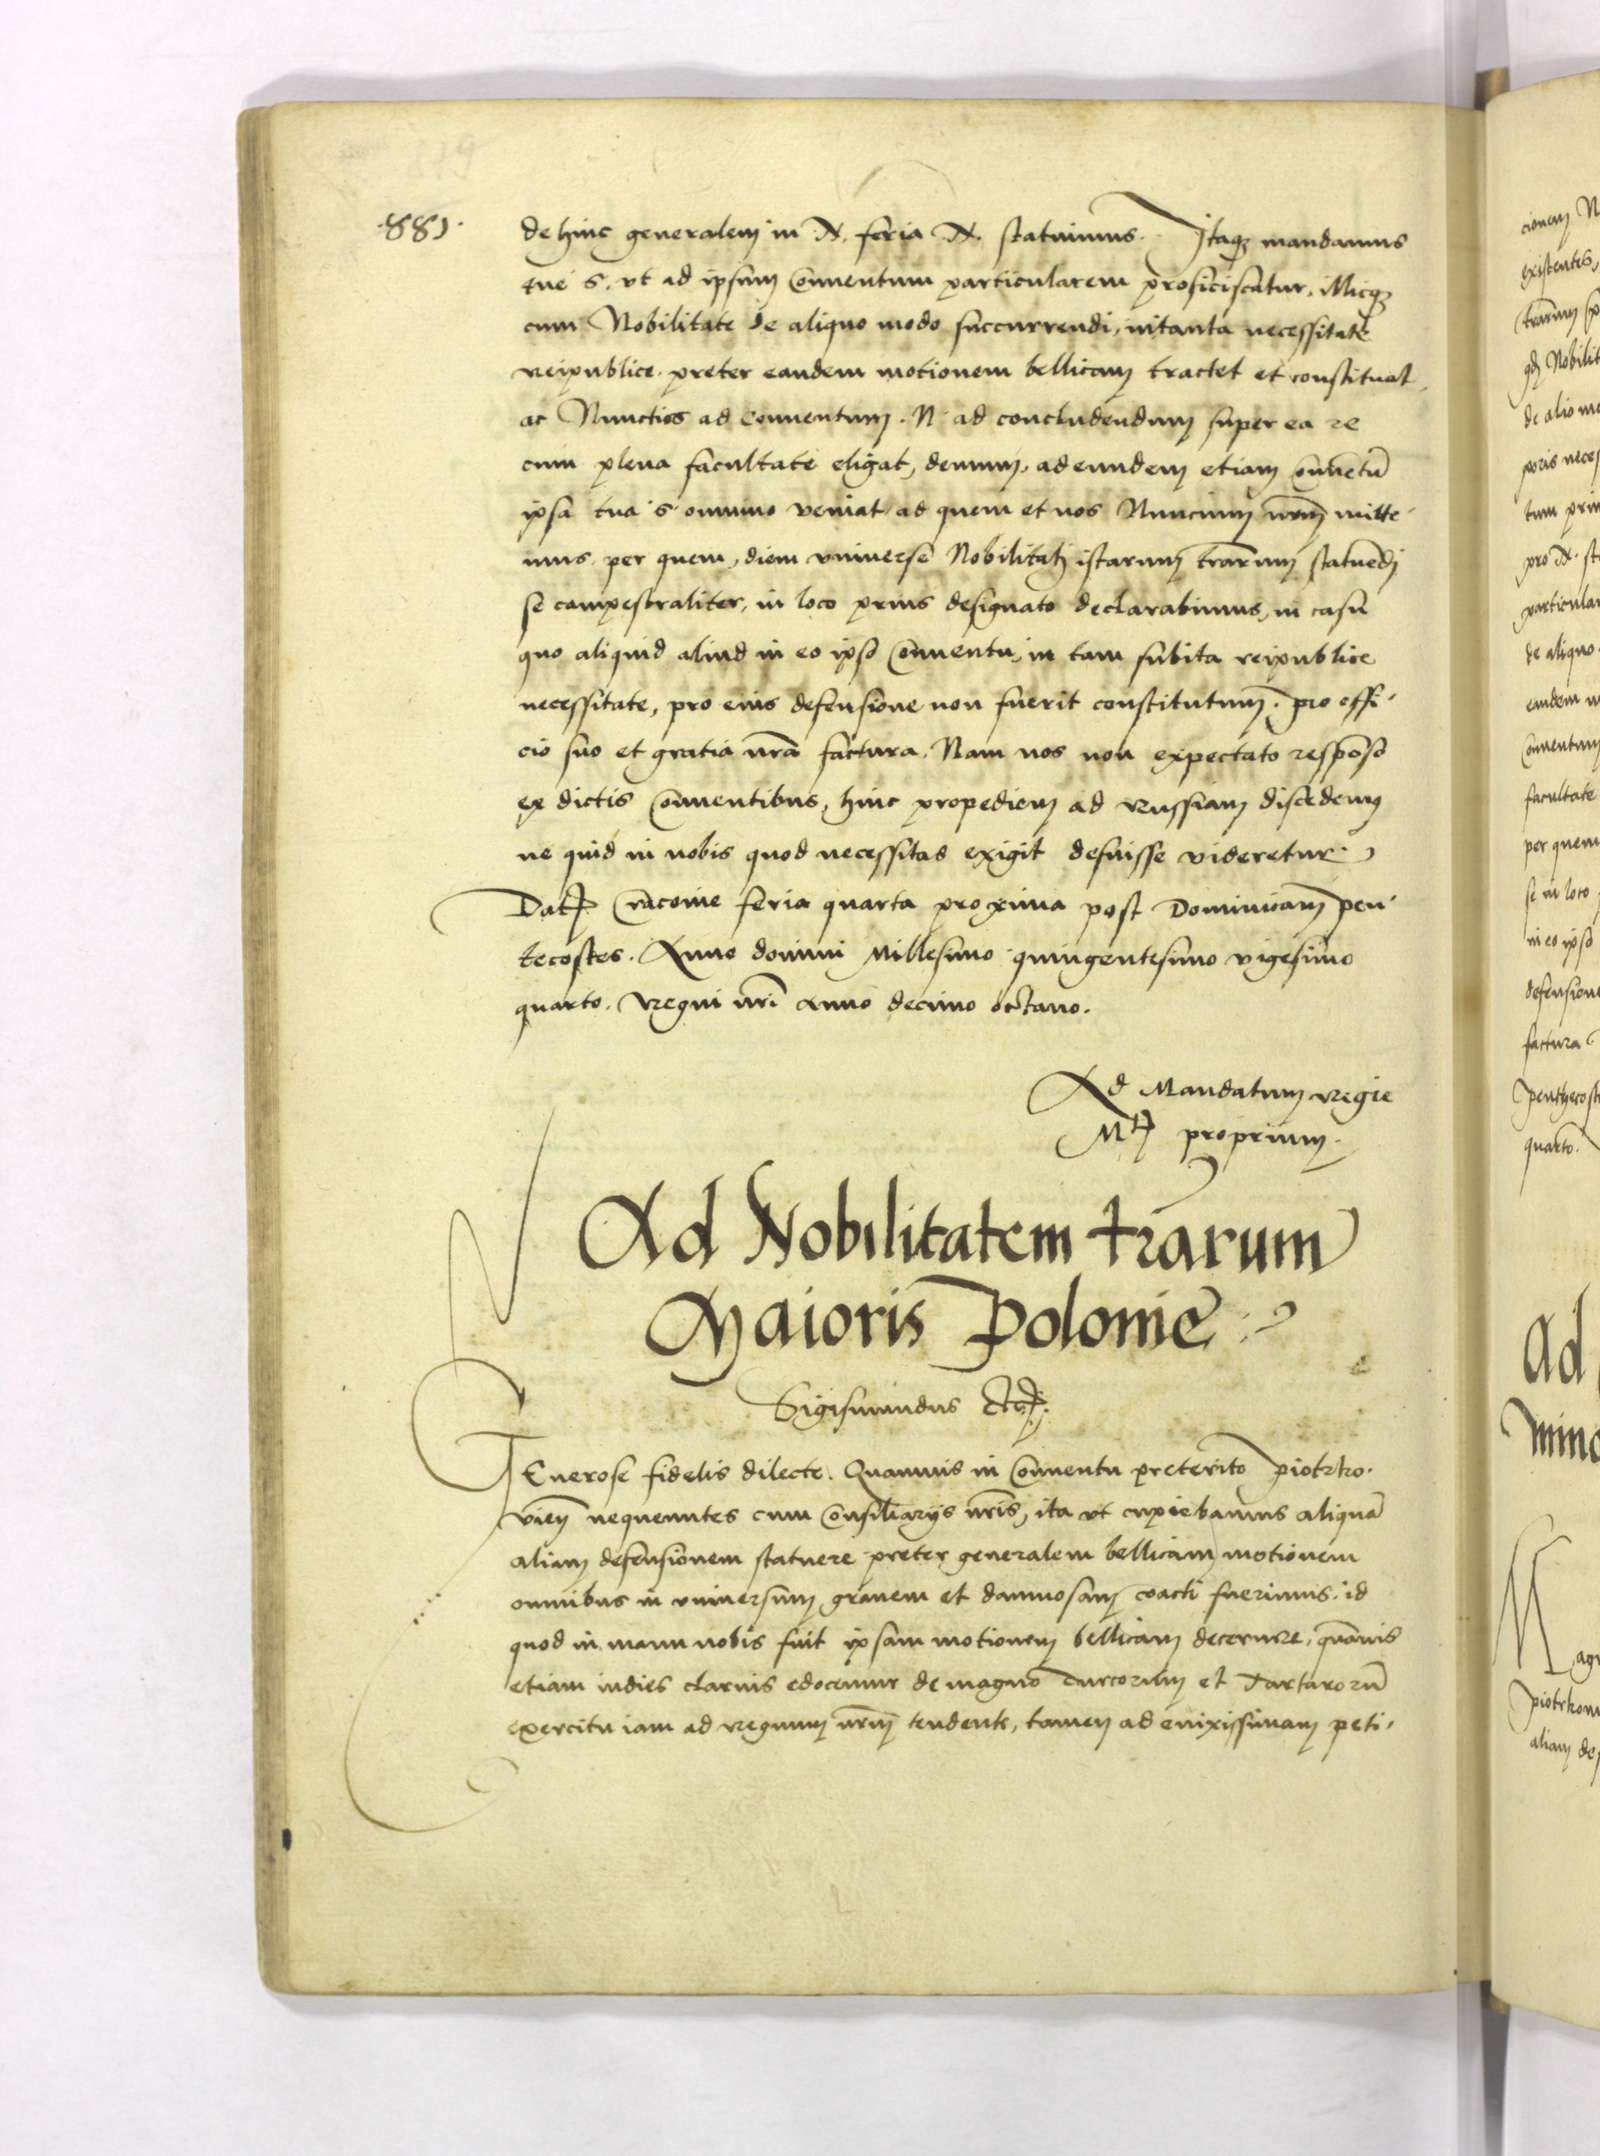 ·881·
de hinc generalem in N. feria N. statuimus. Itaqz mandamus
tue S. vt ad ipsum Conuentum particularem proficiscatur, illicqz
cum Nobilitate de aliquo modo succurrendi, in tanta necessitate
reipublice preter eandem motionem bellicam tractet et constituat
ac Nunctios ad conuentum . N ad concludendum super ea re
cum plena facultate eligat, demum, ad eundem etiam conuētū
ipsa tua S omnino veniat ad quem et nos Nuncium nrm̄ mitte-
mus per quem, diem vniuerse Nobilitati istarum trarum statuēdi
se campestraliter, in loco prius designato declarabimus, in casu
quo aliquid aliud in eo ipso Conuentu, in tam subita reipublice
necessitate, pro eius defensione non fuerit constitutum. pro offi-
cio suo et gratia nrā factura. Nam nos non expectato respōso
ex dictis Conuentibus, hinc propediem ad Russiam discedemus
ne quid in nobis quod necessitas exigit defuisse videretur.
Dat Cracouie feria quarta proxima post Dominicam pen-
tecostes. Anno domini Millesimo quingentesimo vigesimo
quarto. Regni nrī anno decimo octauo.
Ad Mandatum regie
Mtis proprium.
Ad Nobilitatem trarum
Maioris Polonie
Sigismundus Etc.
GEnerose fidelis dilecte. Quamuis in Conuentu preterito piotrko-
vieñ nequeuntes cum Consiliarijs nrīs, ita vt cupiebamus aliquā
aliam defensionem statuere preter generalem bellicam motionem
omnibus in vniuersum grauem et damnosam coacti fuerimus, id
quod in manu nobis fuit ipsam motionem bellicam decernere, quāuis
etiam indies clarius edocemur de magno Turcorum et Tartarorū
exercitu iam ad regnum nrm̄ tendente, tamen ad enixissimam peti-
cionem N
existentes,
de alio mo
tum prin
particular
de aliquo
facultate
per quem
se in loco
in eo ipso
defensione
factura
quarto.
Ad
mino
aliam de